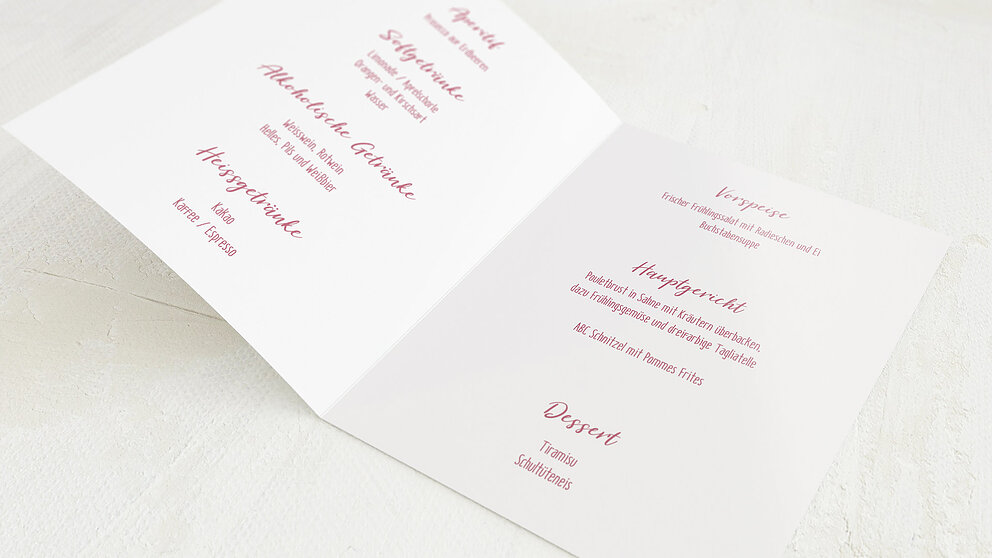 Aperitif
Prosecco auf Erdbeeren
Softgetränke
Limonade / Apfelschorle
Orangen- und Kirschsaft
Wasser
Alkoholische Getränke
Weisswein, Rotwein
Helles, Pils und Weißbier
Heissgetränke
Kakao
Kaffee / Espresso
Vorspeise
Frischer Frühlingssalat mit Radieschen und Ei
Buchstabensuppe
Hauptgericht
Pouletbrust in Sahne mit Kräutern überbacken,
dazu Frühlingsgemüse und dreifarbige Tagliatelle
ABC Schnitzel mit Pommes Frites
Dessert
Tiramisu
Schultüteneis